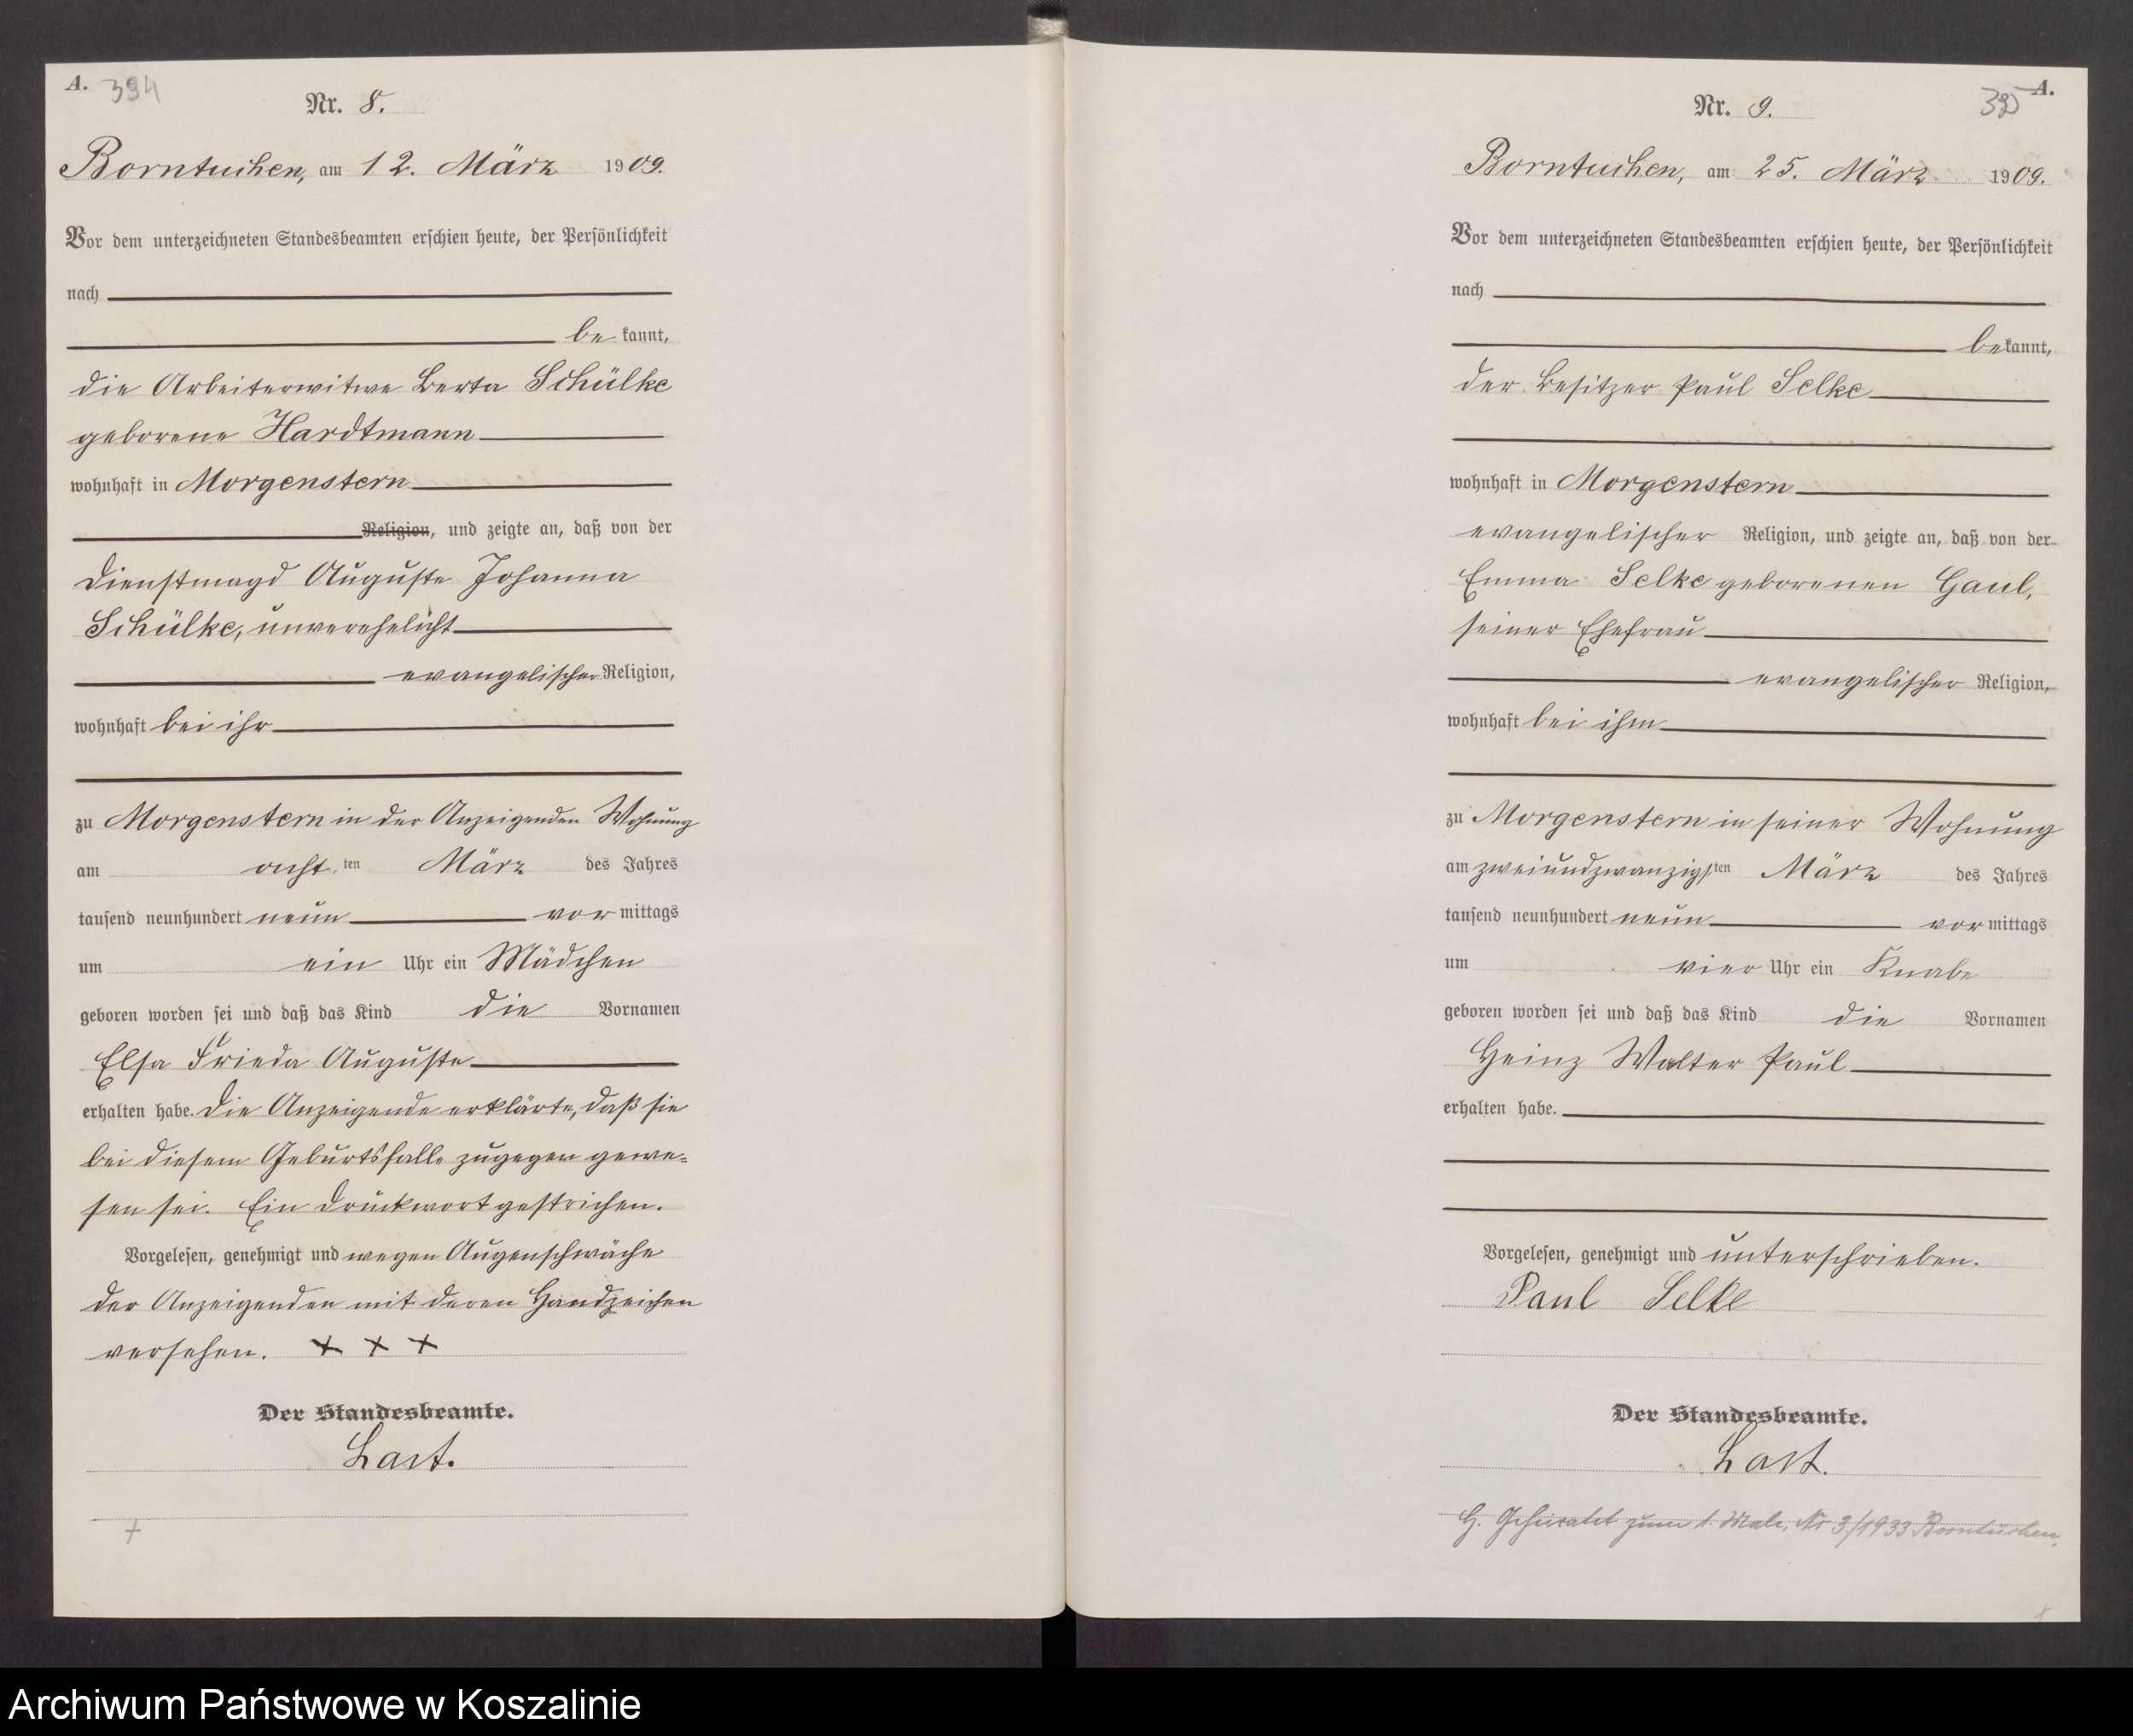 A. 394
Nr. 8.
Borntuchen, am 12. März 1909.
Vor dem unterzeichneten Standesbeamten erschien heute, der Persönlichkeit
nach
bekannt,
die Arbeiterwitwe Berta Schülke
geborene Hardtmann
wohnhaft in Morgenstern
Religion, und zeigte an, daß von der
Dienstmagd Auguste Johanna
Schülke, unverehelicht
evangelischer Religion,
wohnhaft bei ihr
zu Morgenstern in der Anzeigenden Wohnung
am acht ten März des Jahres
tausend neunhundert neun vormittags
um ein Uhr ein Mädchen
geboren worden sei und daß das Kind die Vornamen
Elsa Frieda Auguste
erhalten habe. Die Anzeigende erklärte, daß sie
bei diesem Geburtsfalle zugegen gewe=
sen sei. Ein Druckwort gestrichen.
Vorgelesen, genehmigt und wegen Augenschwäche
der Anzeigenden mit deren Handzeichen
versehen. + + +
Der Standesbeamte.
Last.
A.
Nr. 9.
Borntuchen, am 25. März 1909.
Vor dem unterzeichneten Standesbeamten erschien heute, der Persönlichkeit
nach
bekannt,
der Besitzer Paul Selke
wohnhaft in Morgenstern
evangelischer Religion, und zeigte an, daß von der
Emma Selke geborenen Gaul,
seiner Ehefrau
evangelischer Religion,
wohnhaft bei ihm
zu Morgenstern in seiner Wohnung
am zweiundzwanzigsten März des Jahres
tausend neunhundert neun vormittags
um vier Uhr ein Knabe
geboren worden sei und daß das Kind die Vornamen
Heinz Walter Paul
erhalten habe.
Vorgelesen, genehmigt und unterschrieben.
Paul Selke
Der Standesbeamte.
Last.
G. Geheiratet zum 1. Male, Nr 3/1933 Borntuchen.
Archiwum Państwowe w Koszalinie